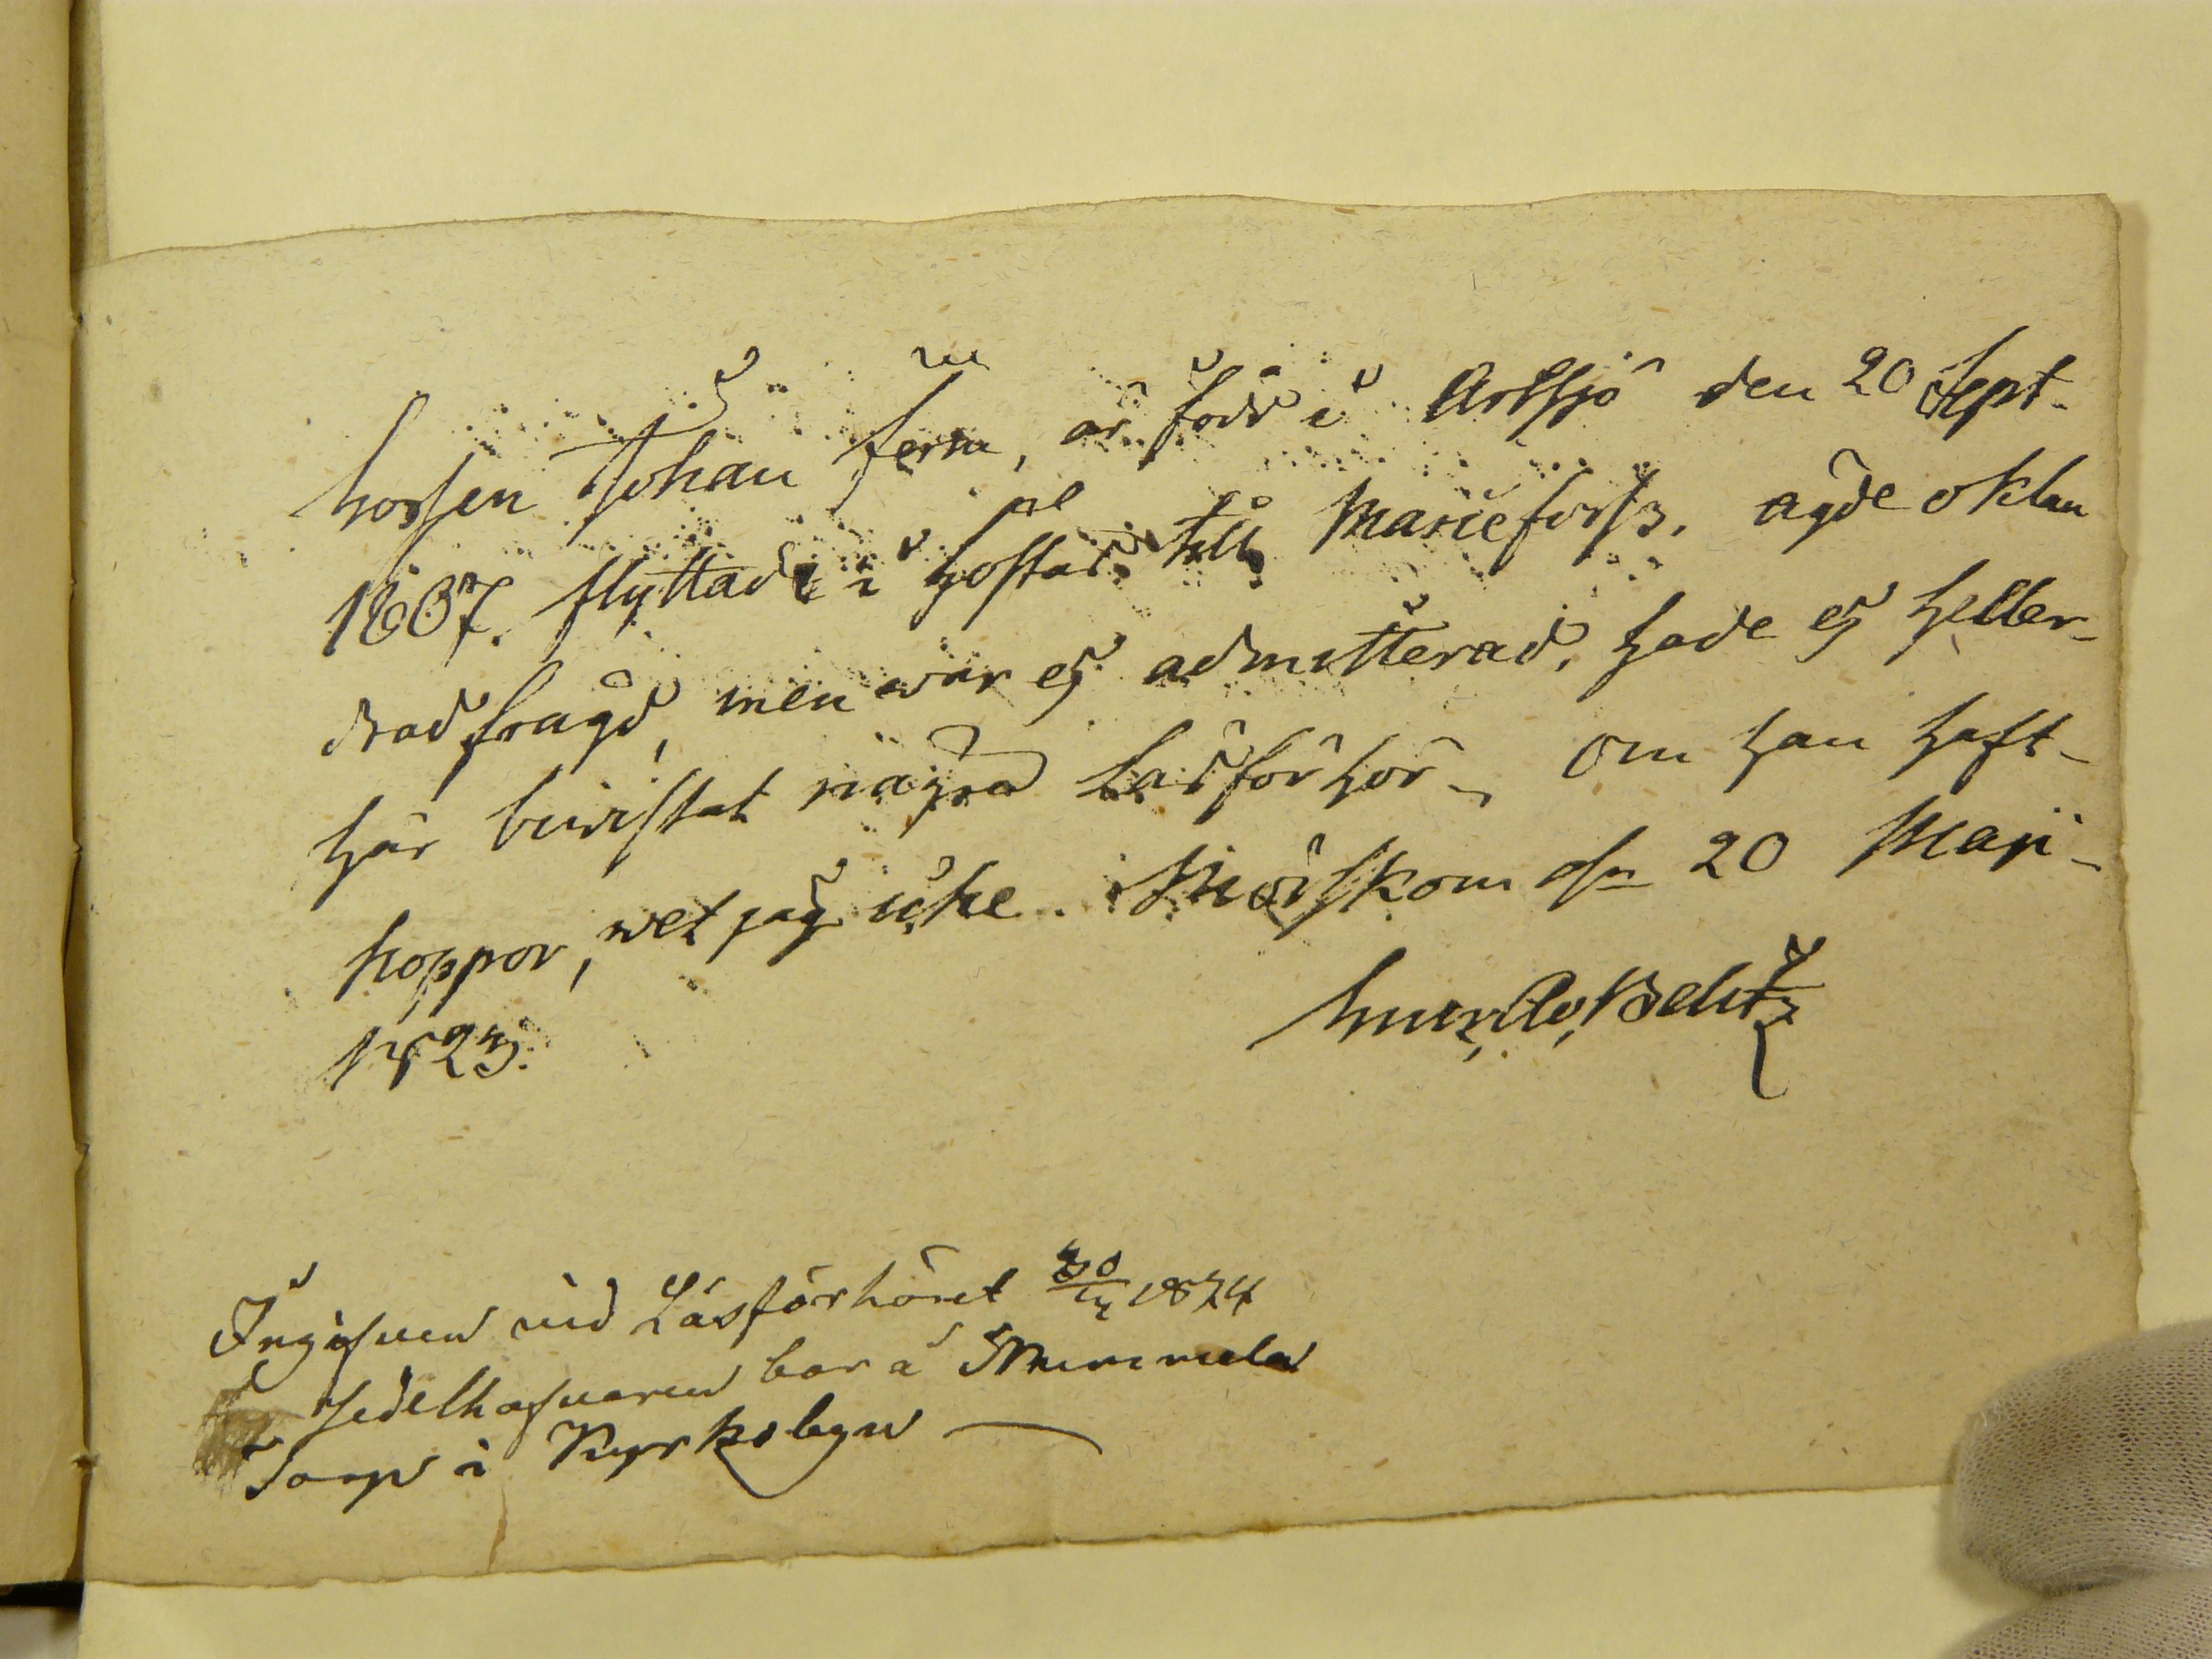 Gossen Johan Fern, är född i Artsjö den 20 Sept.
1807. flyttade i höstas till Marieforss, ägde oklan
drad frägd, men war ej admitterad, hade ej heller
här biwistat några Läsförhör, Om han haft
koppor, wet jag icke. Mörskom d. 20 Maji
1823.
Ingifven vid Läsförhöret 1824
Sedelhafvaren bor å Mummila
Torp i Kyrkobyn